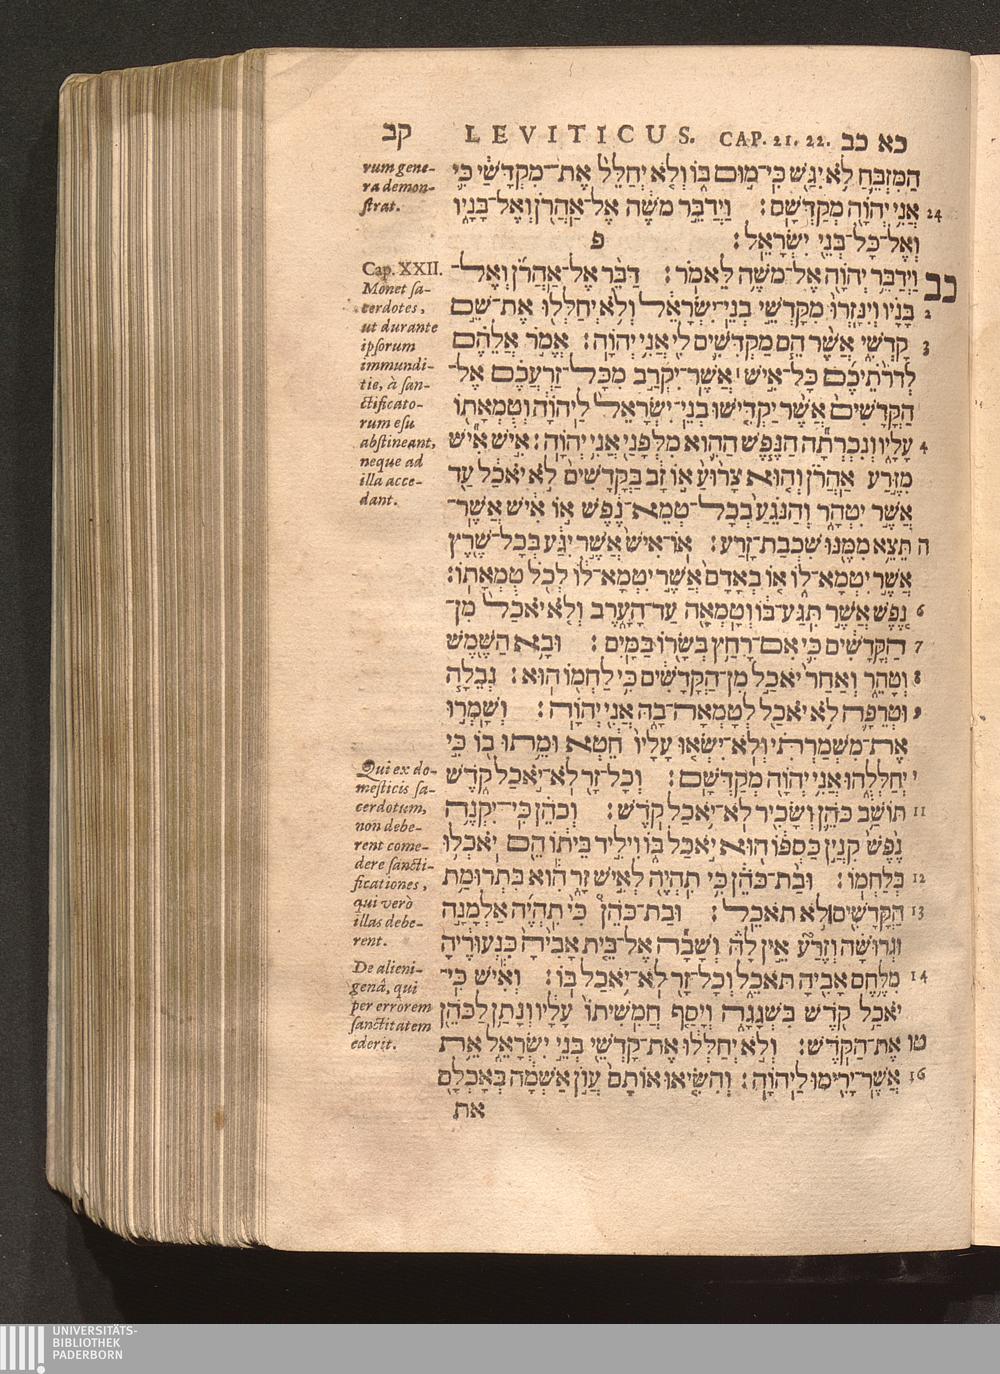 קב LEVITICUS. CAP. 21. 22. כא כב
הַמִּזְבֵּחַ לֹא יִגַּשׁ כִּי־מוּם בּוֹ וְלֹא יְחַלֵּל אֶת־מִקְדָּשַׁי כִּי
אֲנִי יְהוָה מְקַדְּשָׁם׃ וַיְדַבֵּר מֹשֶׁה אֶל־אַהֲרֹן וְאֶל־בָּנָיו 24
וְאֶל־כָּל־בְּנֵי יִשְׂרָאֵל׃ פ
כב וַיְדַבֵּר יְהוָה אֶל־מֹשֶׁה לֵּאמֹר׃ דַּבֵּר אֶל־אַהֲרֹן וְאֶל־
בָּנָיו וְיִנָּזְרוּ מִקָּדְשֵׁי בְנֵי־יִשְׂרָאֵל וְלֹא יְחַלְּלוּ אֶת־שֵׁם 2
קָדְשִׁי אֲשֶׁר הֵם מַקְדִּשִׁים לִי אֲנִי יְהוָה׃ אֱמֹר אֲלֵהֶם 3
לְדֹרֹתֵיכֶם כָּל־אִישׁ׀ אֲשֶׁר־יִקְרַב מִכָּל־זַרְעֲכֶם אֶל־
הַקֳּדָשִׁים אֲשֶׁר יַקְדִּישׁוּ בְנֵי־יִשְׂרָאֵל לַיהוָה וְטֻמְאָתוֹ
עָלָיו וְנִכְרְתָה הַנֶּפֶשׁ הַהִוא מִלְּפָנַי אֲנִי יְהוָה׃ אִישׁ אִישׁ 4
מִזֶּרַע אַהֲרֹן וְהוּא צָרוּעַ אוֹ זָב בַּקֳּדָשִׁים לֹא יֹאכַל עַד
אֲשֶׁר יִטְהָר וְהַנֹּגֵעַ בְּכָל־טְמֵא־נֶפֶשׁ אוֹ אִישׁ אֲשֶׁר־
תֵּצֵא מִמֶּנּוּ שִׁכְבַת־זָרַע׃ אוֹ־אִישׁ אֲשֶׁר יִגַּע בְּכָל־שֶׁרֶץ ה
אֲשֶׁר יִטְמָא־לוֹ אוֹ בְאָדָם אֲשֶׁר יִטְמָא־לוֹ לְכֹל טֻמְאָתוֹ׃
נֶפֶשׁ אֲשֶׁר תִּגַּע־בּוֹ וְטָמְאָה עַד־הָעָרֶב וְלֹא יֹאכַל מִן־ 6
הַקֳּדָשִׁים כִּי אִם־רָחַץ בְּשָׂרוֹ בַּמָּיִם׃ וּבָא הַשֶּׁמֶשׁ 7
וְטָהֵר וְאַחַר יֹאכַל מִן־הַקֳּדָשִׁים כִּי לַחְמוֹ הוּא׃ נְבֵלָה 8
וּטְרֵפָה לֹא יֹאכַל לְטָמְאָה־בָהּ אֲנִי יְהוָה׃ וְשָׁמְרוּ 9
אֶת־מִשְׁמַרְתִּי וְלֹא־יִשְׂאוּ עָלָיו חֵטְא וּמֵתוּ בוֹ כִּי
יְחַלְּלֻהוּ אֲנִי יְהוָה מְקַדְּשָׁם׃ וְכָל־זָר לֹא־יֹאכַל קֹדֶשׁ י
תּוֹשַׁב כֹּהֵן וְשָׂכִיר לֹא־יֹאכַל קֹדֶשׁ׃ וְכֹהֵן כִּי־יִקְנֶה 11
נֶפֶשׁ קִנְיַן כַּסְפּוֹ הוּא יֹאכַל בּוֹ וִילִיד בֵּיתוֹ הֵם יֹאכְלוּ
בְלַחְמוֹ׃ וּבַת־כֹּהֵן כִּי תִהְיֶה לְאִישׁ זָר הִוא בִּתְרוּמַת 12
הַקֳּדָשִׁים לֹא תֹאכֵל׃ וּבַת־כֹּהֵן כִּי תִהְיֶה אַלְמָנָה 13
וּגְרוּשָׁה וְזֶרַע אֵין לָהּ וְשָׁבָה אֶל־בֵּית אָבִיהָ כִּנְעוּרֶיהָ
מִלֶּחֶם אָבִיהָ תֹּאכֵל וְכָל־זָר לֹא־יֹאכַל בּוֹ׃ וְאִישׁ כִּי־ 14
יֹאכַל קֹדֶשׁ בִּשְׁגָגָה וְיָסַף חֲמִשִׁיתוֹ עָלָיו וְנָתַן לַכֹּהֵן
אֶת־הַקֹּדֶשׁ׃ וְלֹא יְחַלְּלוּ אֶת־קָדְשֵׁי בְּנֵי יִשְׂרָאֵל אֵת טו
אֲשֶׁר־יָרִימוּ לַיהוָה׃ וְהִשִּׂיאוּ אוֹתָם עֲוֺן אַשְׁמָה בְּאָכְלָם 16
את
rum gene-
ra demon-
strat.
Cap. XXII.
Monet sa-
cerdotes,
ut durante
ipsorum
immundi-
tie, à san-
ctificato-
rum esu
abstineant,
neque ad
illa acce-
dant.
Qui ex do-
mesticis sa-
cerdotum,
non debe-
rent come-
dere sancti-
ficationes,
qui verò
illas debe-
rent.
De alieni-
genâ, qui
per errorem
sanctitatem
ederit.
UNIVERSITÄTS-
BIBLIOTHEK
PADERBORN